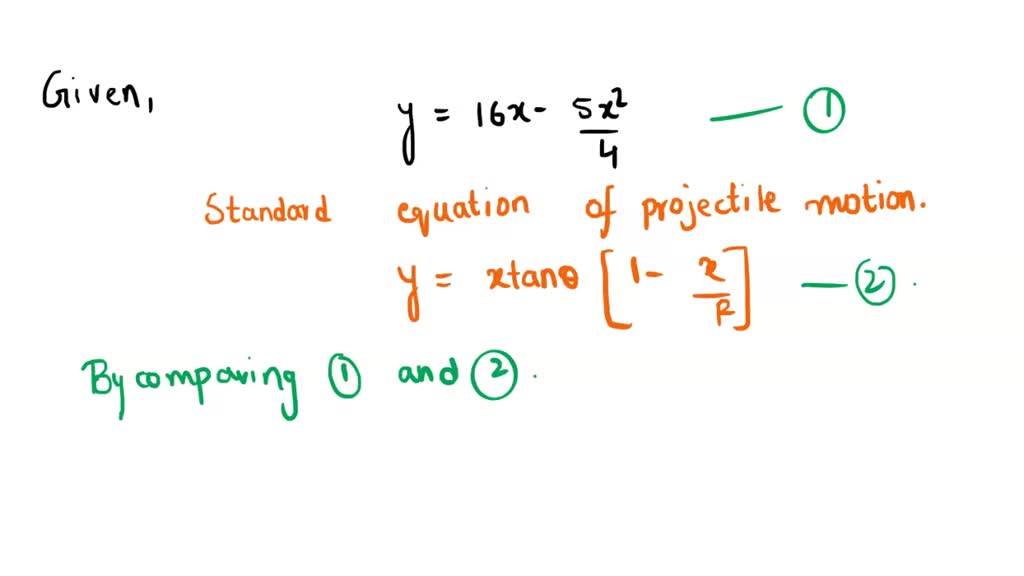 Given,
y = 16x - 5x²/4 —— ①
Standard equation of projectile motion.
y = x tanθ [1 - x/R] —— ② .
By comparing ① and ② .